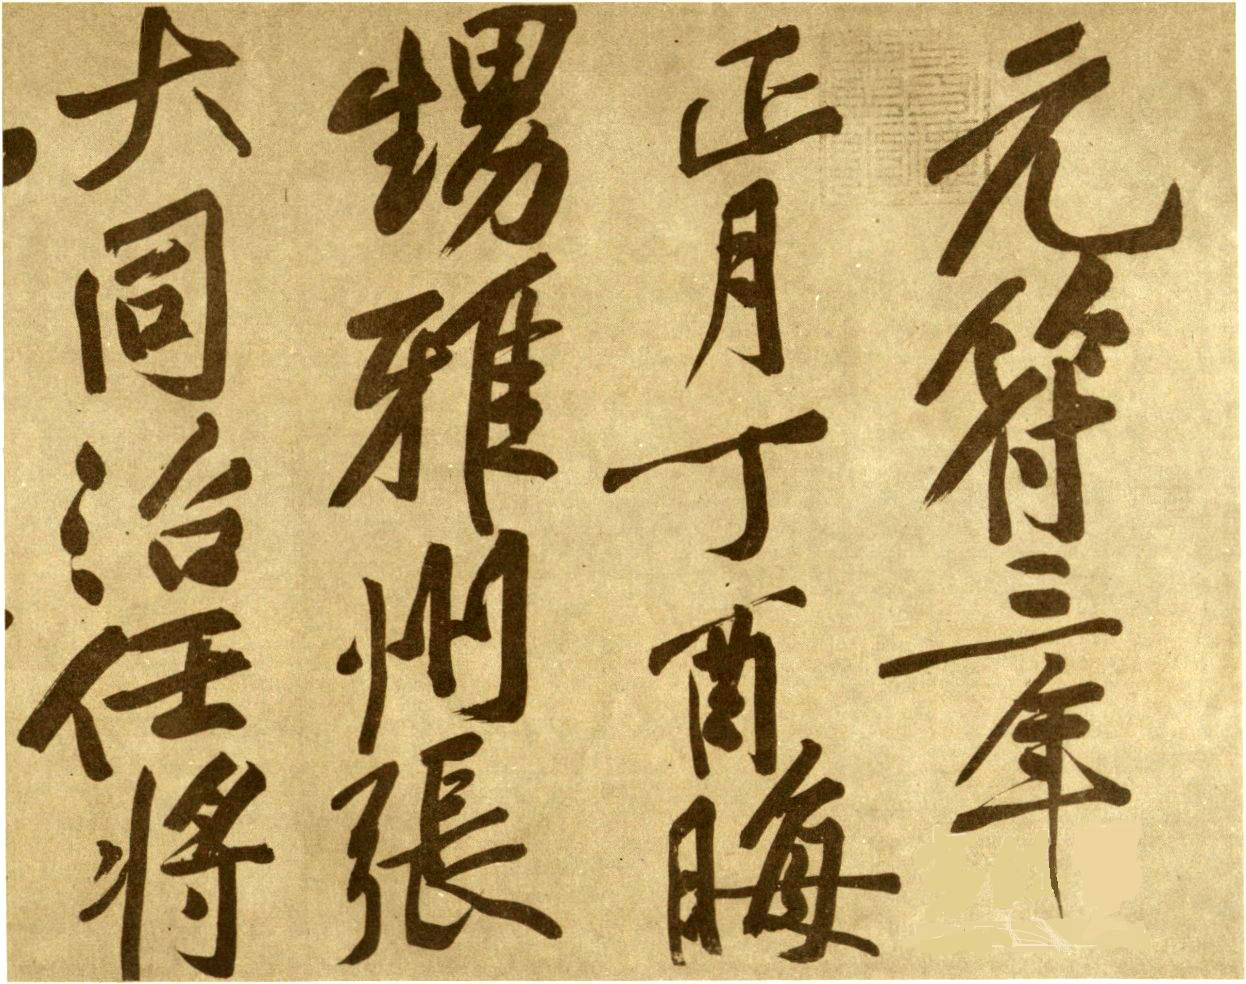 元符三年
正月丁酉晦
甥雅州張
大同治任將